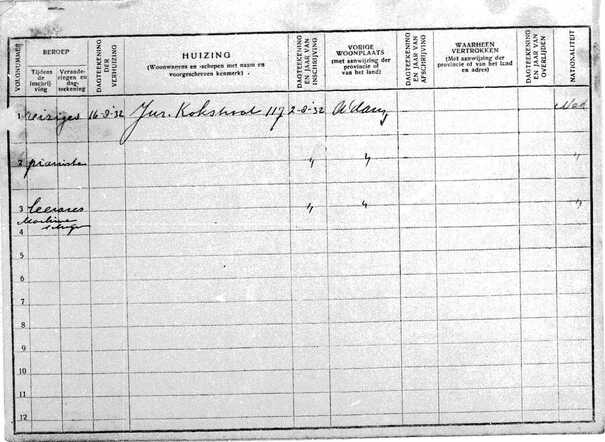 VOLGNUMMER
BEROEP
Tijdens de inschrijving
Veranderingen en dagteekening
DAGTEEKENING DER VERHUIZING
HUIZING
(Woonwagens en -schepen met naam en voorgeschreven kenmerk).
DAGTEEKENING EN JAAR VAN INSCHRIJVING
VORIGE WOONPLAATS
(met aanwijzing der provincie of van het land)
DAGTEEKENING EN JAAR VAN AFSCHRIJVING
WAARHEEN VERTROKKEN
(Met aanwijzing der provincie of van het land en adres)
DAGTEEKENING EN JAAR VAN OVERLIJDEN
NATIONALITEIT
1 reiziger 16-8-32 Jur. Kokstraat 117 2-8-32 A'dam Ned
2 pianiste " " "
3 leerares " " "
Machine
4
5
6
7
8
9
10
11
12